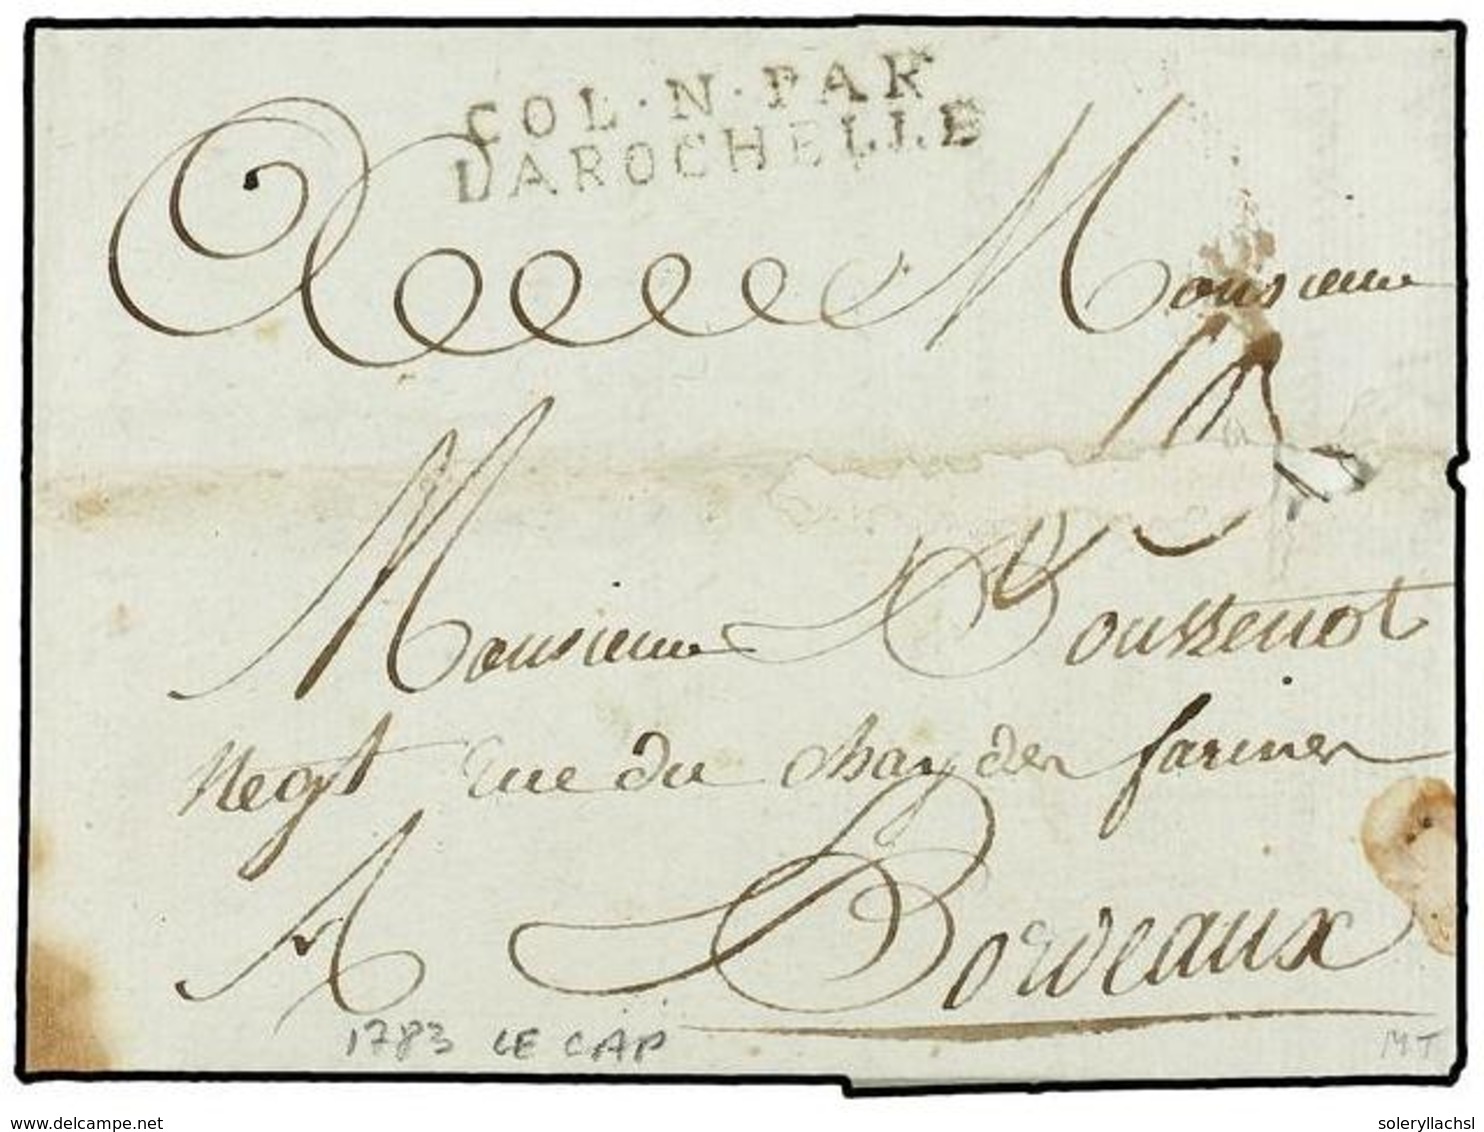 COL·N·PAR
LAROCHELLE
Monsieur
Monsieur Boussenot
Negt rue du Chay des farines
A Bordeaux
1783 LE CAP
MT
www.delcampe.net
soleryllachsl